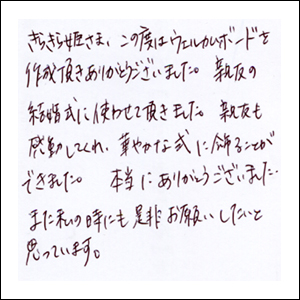 きらきら姫さま、この度はウェルカムボードを
作成頂きありがとうございました。親友の
結婚式に使わせて頂きました。親友も
感動してくれ、華やかな式に飾ることが
できました。 本当にありがとうございました.
また私の時にも是非お願いしたいと
思っています。